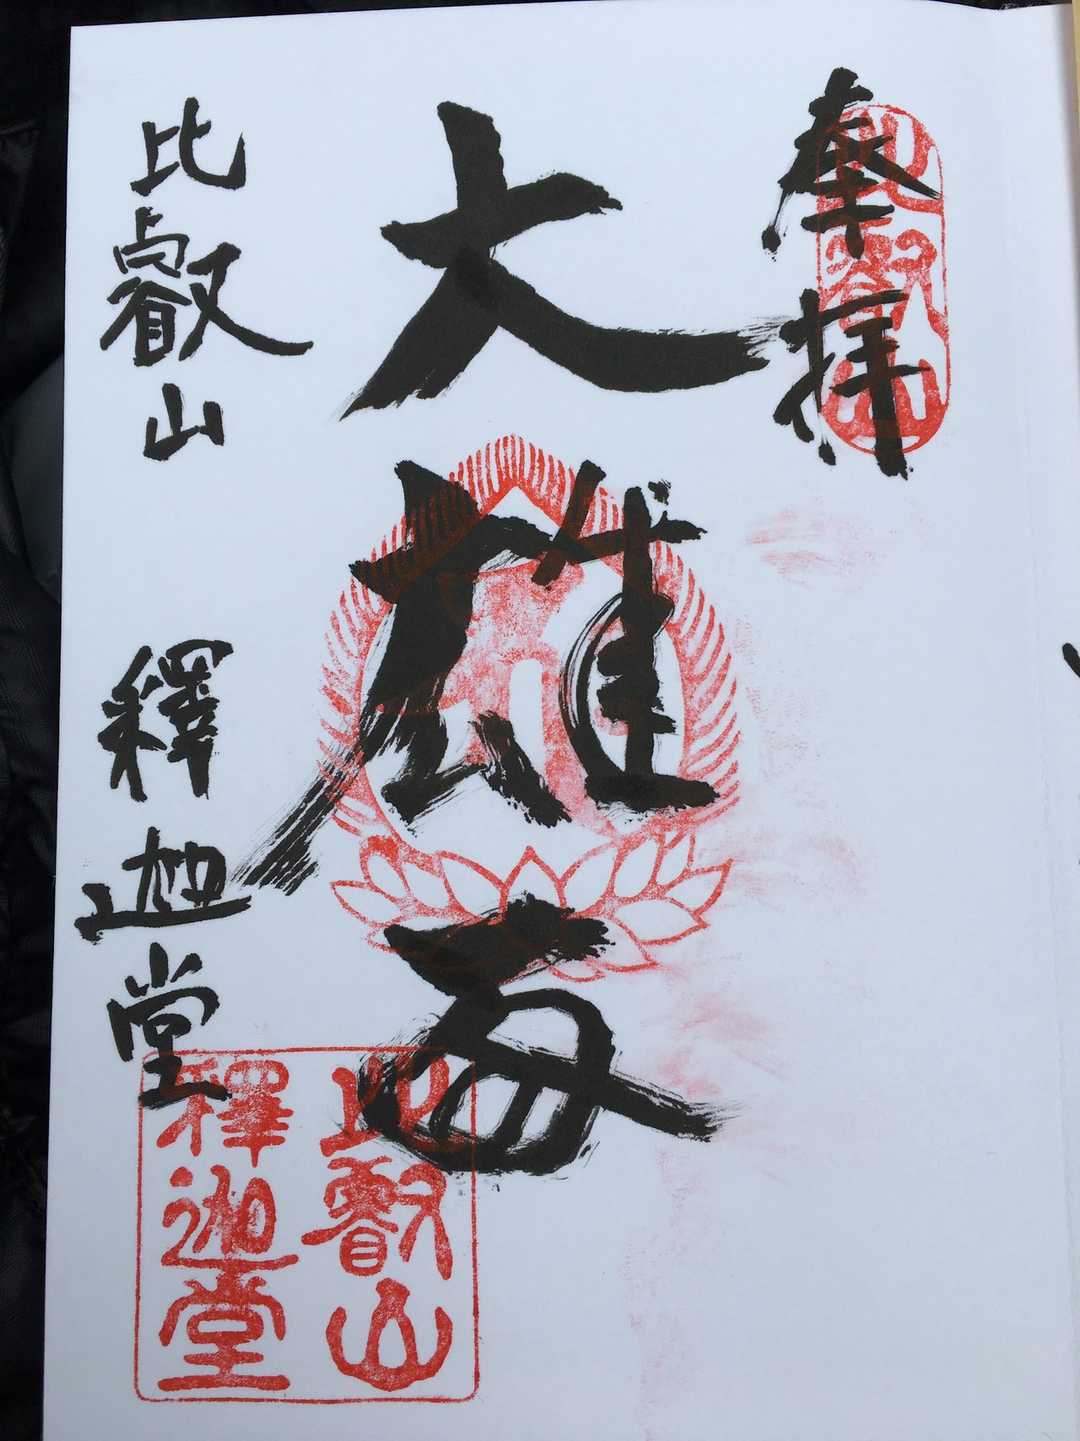 奉拝
比叡山
大雄
比叡山 釋迦堂
比叡山
釋迦堂